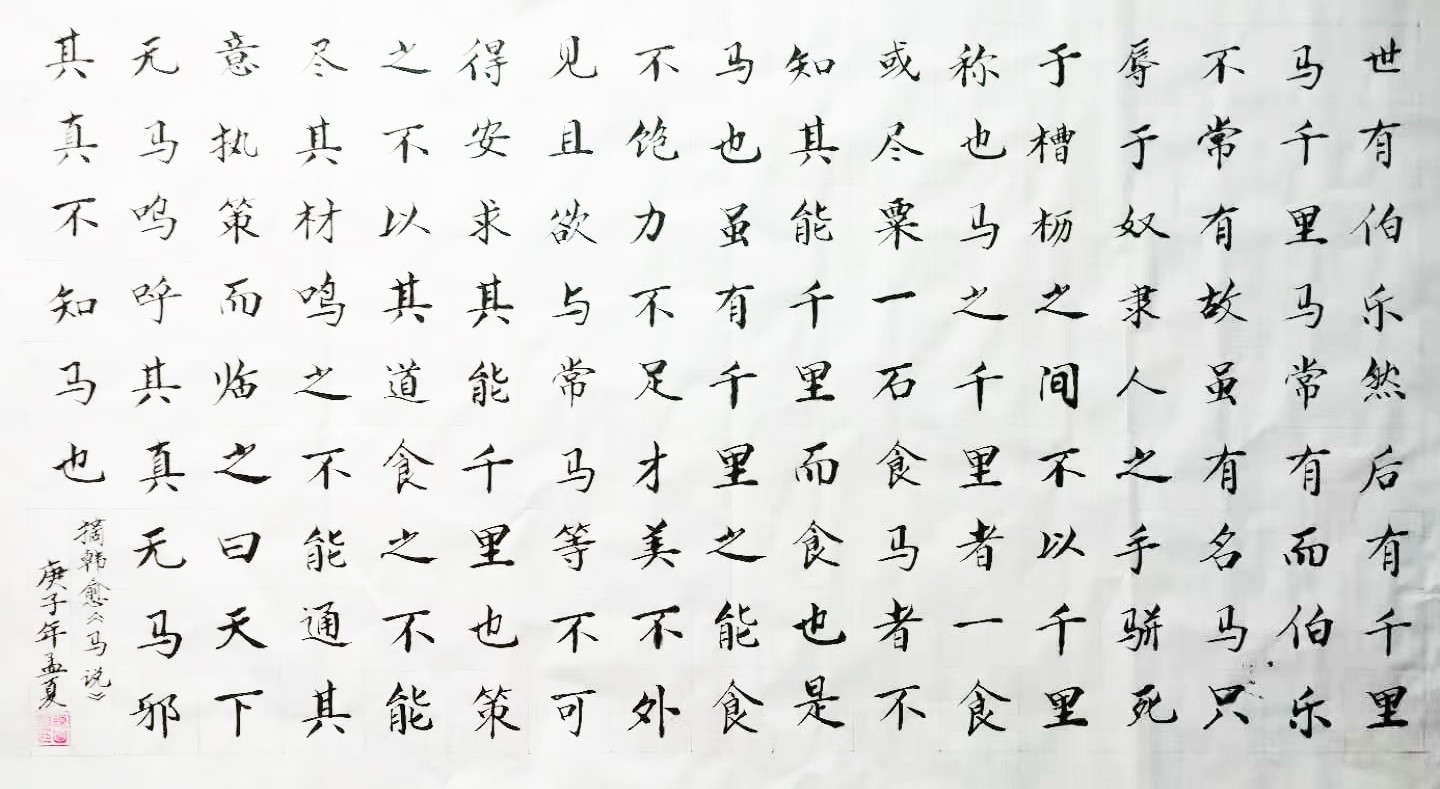 世有伯乐然后有千里
马千里马常有而伯乐
不常有故虽有名马只
辱于奴隶人之手骈死
于槽枥之间不以千里
称也马之千里者一食
或尽粟一石食马者不
知其能千里而食也是
马也虽有千里之能食
不饱力不足才美不外
见且欲与常马等不可
得安求其能千里也策
之不以其道食之不能
尽其材鸣之不能通其
意执策而临之曰天下
无马呜呼其真无马邪
其真不知马也
摘韩愈《马说》
庚子年孟夏